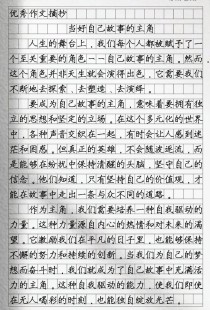 优秀作文摘抄
当好自己故事的主角
人生的舞台上，我们每个人都被赋予了一
个至关重要的角色——自己故事的主角，然而
这个角色并非天生就会演得出色，它需要我们
不断地去探索，去塑造，去演绎。
要成为自己故事的主角，意味着要拥有独
立的思想和坚定的立场，在这个多元化的世界
中，各种声音交织在一起，有时会让人感到迷
茫和困惑。但真正的英雄，不会随波逐流，而
是能够在纷扰中保持清醒的头脑，坚守自己的
信念，他们知道，只有坚持自己的价值观，才
能在故事中走出一条与众不同的道路。
作为主角，我们需要培养一种自我驱动的
力量，这种力量源自内心的热情和对未来的渴
望。它激励我们在平凡的日子里，也能够保持
不懈的努力和持续的创新，当我们为自己的梦
想而奋斗时，我们就成为了自己故事中充满活
力的主角，这种自我驱动的能力，使我们即使
在无人喝彩的时刻，也能独自绽放光芒。